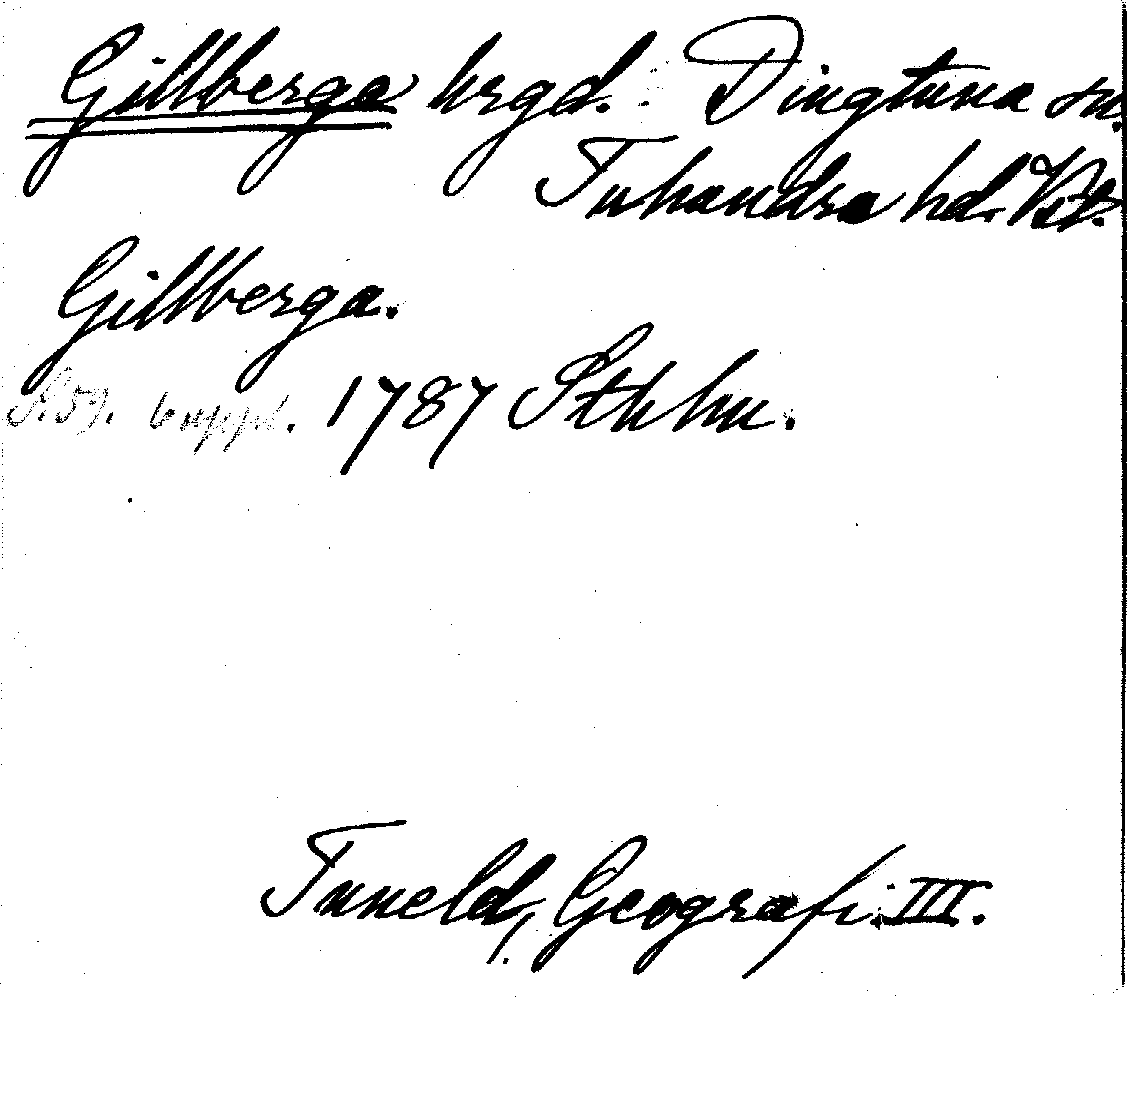 Gillberga hrgd. Dingtuna sn.
Tuhundra hd. Vstl.
Gillberga.
S. 59. 6 uppl. 1787 Sthlm.
Tuneld, Geografi III.